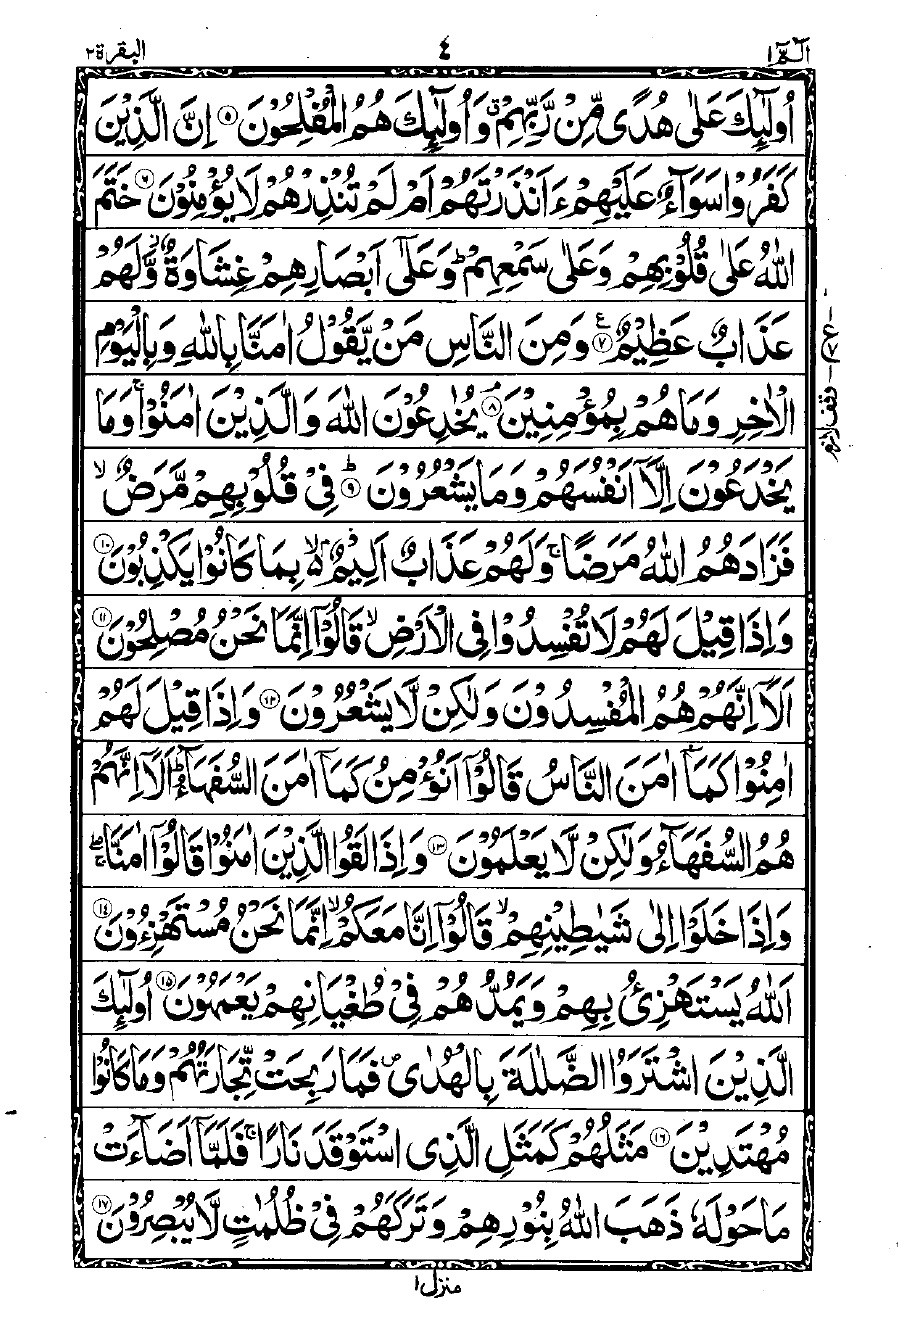 الٓمّٓ ١ ٤ البقرة ٢
اُولٰٓئِكَ عَلٰى هُدًى مِّنْ رَّبِّهِمْ ۗ وَاُولٰٓئِكَ هُمُ الْمُفْلِحُوْنَ ۝٥ اِنَّ الَّذِيْنَ
كَفَرُوْا سَوَآءٌ عَلَيْهِمْ ءَاَنْذَرْتَهُمْ اَمْ لَمْ تُنْذِرْهُمْ لَا يُؤْمِنُوْنَ ۝٦ خَتَمَ
اللّٰهُ عَلٰى قُلُوْبِهِمْ وَعَلٰى سَمْعِهِمْ ؕ وَعَلٰٓى اَبْصَارِهِمْ غِشَاوَةٌ ز وَّلَهُمْ
عَذَابٌ عَظِيْمٌ ۝٧ ع وَمِنَ النَّاسِ مَنْ يَّقُوْلُ اٰمَنَّا بِاللّٰهِ وَبِالْيَوْمِ
الْاٰخِرِ وَمَا هُمْ بِمُؤْمِنِيْنَ ۝٨ۘ يُخٰدِعُوْنَ اللّٰهَ وَالَّذِيْنَ اٰمَنُوْا ۚ وَمَا
يَخْدَعُوْنَ اِلَّآ اَنْفُسَهُمْ وَمَا يَشْعُرُوْنَ ۝٩ؕ فِيْ قُلُوْبِهِمْ مَّرَضٌ ۙ
فَزَادَهُمُ اللّٰهُ مَرَضًا ۚ وَلَهُمْ عَذَابٌ اَلِيْمٌ ۢ ۙ بِمَا كَانُوْا يَكْذِبُوْنَ ۝١٠
وَاِذَا قِيْلَ لَهُمْ لَا تُفْسِدُوْا فِى الْاَرْضِ ۙ قَالُوْٓا اِنَّمَا نَحْنُ مُصْلِحُوْنَ ۝١١
اَلَآ اِنَّهُمْ هُمُ الْمُفْسِدُوْنَ وَلٰكِنْ لَّا يَشْعُرُوْنَ ۝١٢ وَاِذَا قِيْلَ لَهُمْ
اٰمِنُوْا كَمَآ اٰمَنَ النَّاسُ قَالُوْٓا اَنُؤْمِنُ كَمَآ اٰمَنَ السُّفَهَآءُ ؕ اَلَآ اِنَّهُمْ
هُمُ السُّفَهَآءُ وَلٰكِنْ لَّا يَعْلَمُوْنَ ۝١٣ وَاِذَا لَقُوا الَّذِيْنَ اٰمَنُوْا قَالُوْٓا اٰمَنَّا ۚۖ
وَاِذَا خَلَوْا اِلٰى شَيٰطِيْنِهِمْ ۙ قَالُوْٓا اِنَّا مَعَكُمْ ۙ اِنَّمَا نَحْنُ مُسْتَهْزِءُوْنَ ۝١٤
اَللّٰهُ يَسْتَهْزِئُ بِهِمْ وَيَمُدُّهُمْ فِيْ طُغْيَانِهِمْ يَعْمَهُوْنَ ۝١٥ اُولٰٓئِكَ
الَّذِيْنَ اشْتَرَوُا الضَّلٰلَةَ بِالْهُدٰى ۪ فَمَا رَبِحَتْ تِّجَارَتُهُمْ وَمَا كَانُوْا
مُهْتَدِيْنَ ۝١٦ مَثَلُهُمْ كَمَثَلِ الَّذِى اسْتَوْقَدَ نَارًا ۚ فَلَمَّآ اَضَآءَتْ
مَا حَوْلَهٗ ذَهَبَ اللّٰهُ بِنُوْرِهِمْ وَتَرَكَهُمْ فِيْ ظُلُمٰتٍ لَّا يُبْصِرُوْنَ ۝١٧
منزل ١
وقف لازم